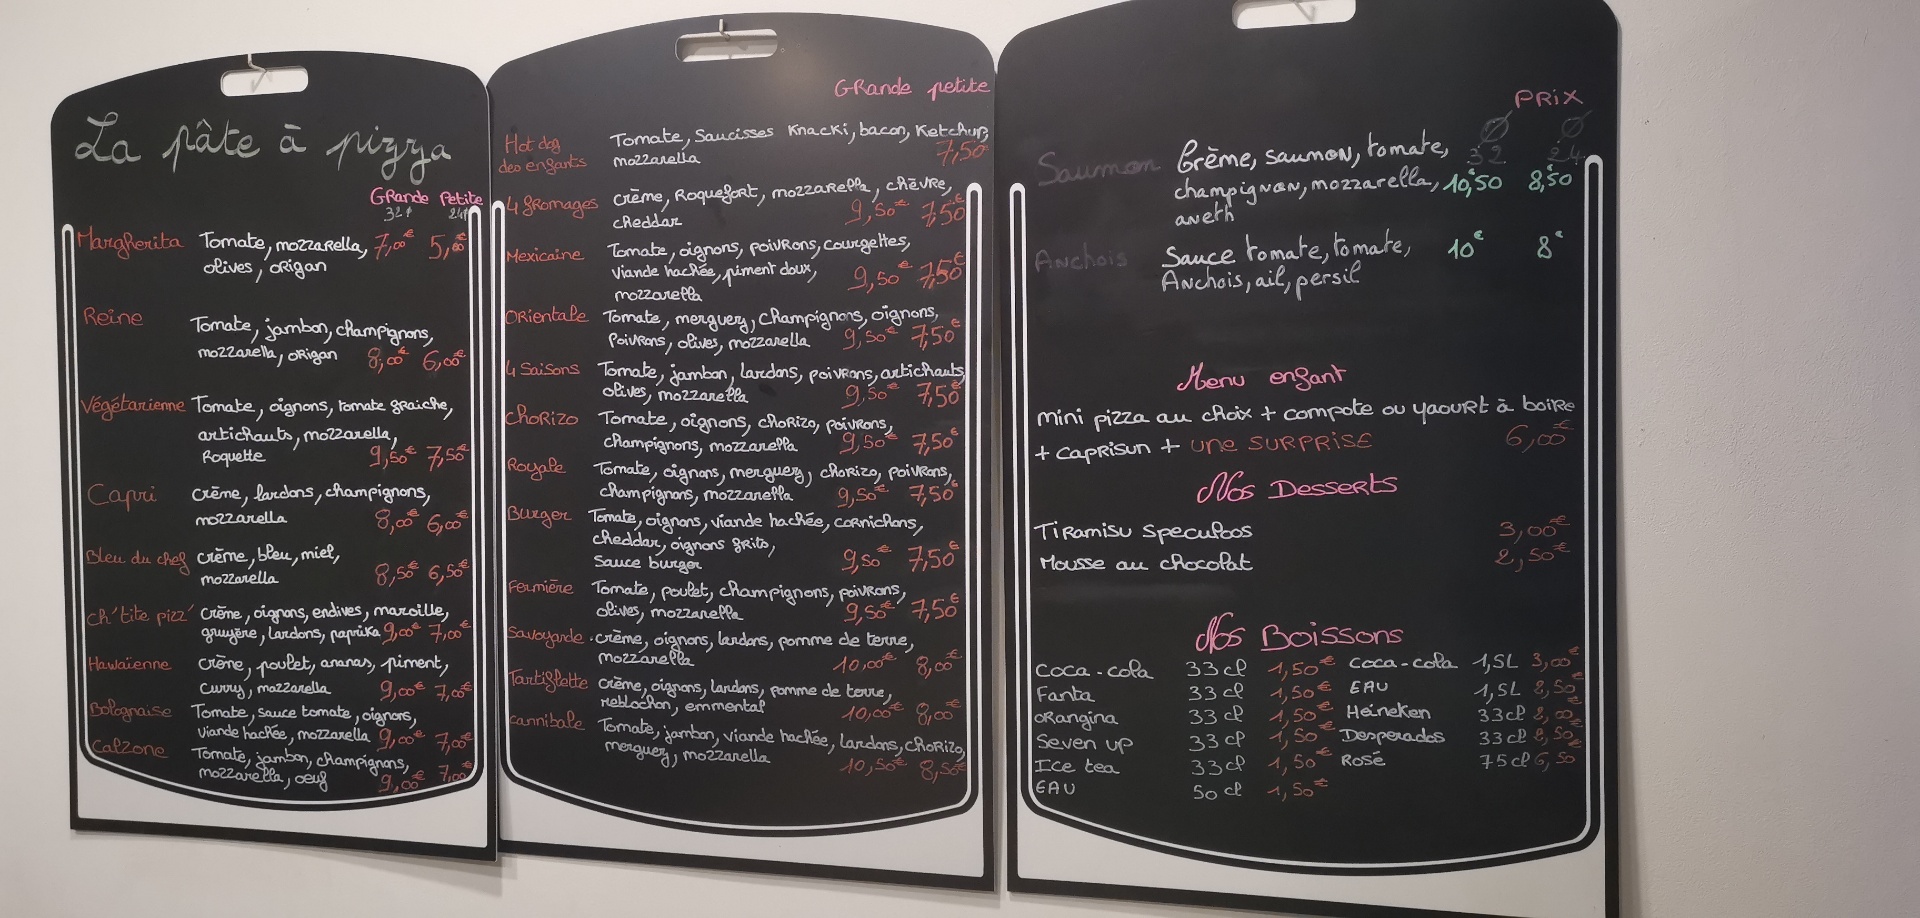 La pâte à pizza
Grande Petite
32
Margherita Tomate, mozzarella, 7,00€ 5,00€
olives, origan
Reine Tomate, jambon, champignons,
mozzarella, origan 8,00€ 6,00€
Végétarienne Tomate, oignons, tomate fraiche,
artichauts, mozzarella,
Roquette 9,50€ 7,50€
Capri crème, lardons, champignons,
mozzarella 8,00€ 6,00€
Bleu du chef crème, bleu, miel,
mozzarella 8,50€ 6,50€
ch'tite pizz' Crème, oignons, endives, maroille,
gruyère, lardons, paprika 9,00€ 7,00€
Hawaïenne crème, poulet, ananas, piment,
curry, mozzarella 9,00€ 7,00€
Bolognaise Tomate, sauce tomate, oignons,
viande hachée, mozzarella 9,00€ 7,00€
Calzone Tomate, jambon, champignons,
mozzarella, oeuf 9,00€ 7,00
Grande petite
Hot dog Tomate, Saucisses Knacki, bacon, Ketchup,
des enfants mozzarella 7,50
4 fromages crème, Roquefort, mozzarella, chèvre,
cheddar 9,50€ 7,50€
Mexicaine Tomate, oignons, poivrons, courgettes,
viande hachée, piment doux, 9,50€ 7,50€
mozzarella
Orientale Tomate, merguez, champignons, oignons,
Poivrons, olives, mozzarella 9,50€ 7,50€
4 Saisons Tomate, jambon, lardons, poivrons, artichauts,
olives, mozzarella 9,50€ 7,50€
Chorizo Tomate, oignons, chorizo, poivrons,
champignons, mozzarella 9,50€ 7,50€
Royale Tomate, oignons, merguez, chorizo, poivrons,
champignons, mozzarella 9,50€ 7,50€
Burger Tomate, oignons, viande hachée, cornichons,
cheddar, oignons frits,
Sauce burger 9,50€ 7,50€
Fermière Tomate, poulet, champignons, poivrons,
olives, mozzarella 9,50€ 7,50€
Savoyarde crème, oignons, lardons, pomme de terre,
mozzarella 10,00€ 8,00€
Tartiflette crème, oignons, lardons, pomme de terre,
reblochon, emmental 10,00€ 8,00€
cannibale Tomate, jambon, viande hachée, lardons, chorizo,
merguez, mozzarella 10,50€ 8,50€
PRIX
Ø Ø
32 24
Saumon Crème, saumon, tomate,
champignon, mozzarella, 10,50€ 8,50€
aneth
Anchois Sauce tomate, tomate, 10€ 8€
Anchois, ail, persil
Menu enfant
mini pizza au choix + compote ou yaourt à boire
+ caprisun + une SURPRISE 6,00€
Nos Desserts
Tiramisu Speculoos 3,00€
Mousse au chocolat 2,50€
Nos Boissons
Coca-cola 33 cl 1,50€ Coca-cola 1,5L 3,00€
Fanta 33 cl 1,50€ EAU 1,5L 2,50
Orangina 33 cl 1,50€ Heineken 33cl 2,00€
Seven up 33 cl 1,50€ Desperados 33cl 2,50€
Ice tea 33cl 1,50€ Rosé 75cl 6,50
EAU 50 cl 1,50€